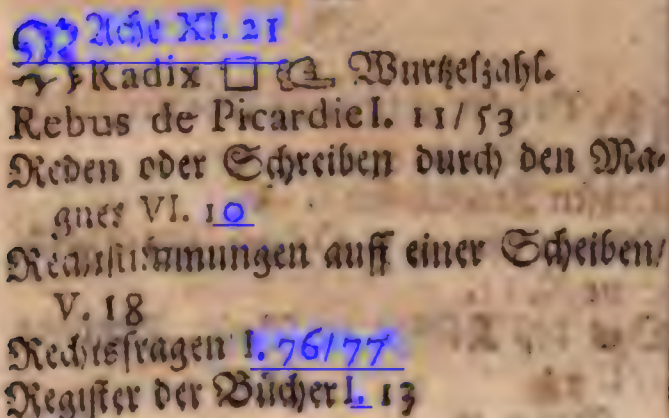 Rache XI. 21
Radix □ ☞ Wurtzelzahl.
Rebus de Picardie I. 11/53
Reden oder Schreiben durch den Ma-
gnet VI. 10
auff einer Scheiben/
V. 18
Rechtsfragen I. 76/77
Register der Bücher I. 13